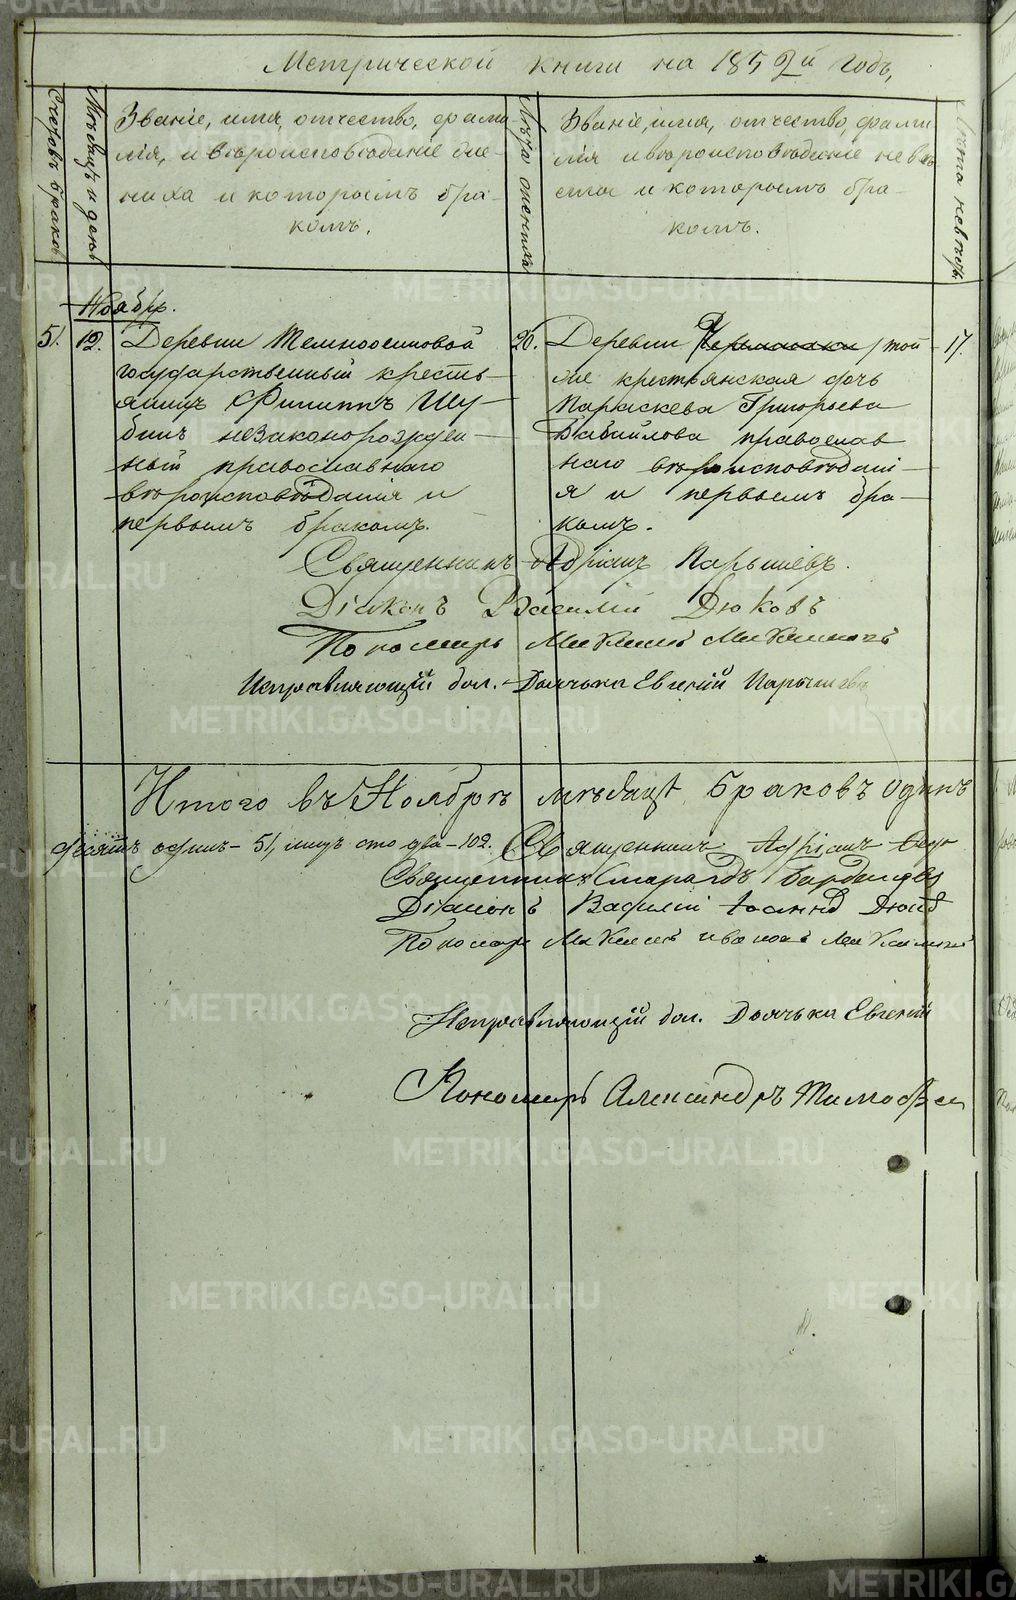 Метрической книги на 1852й годъ,
Счетъ браковъ
Мѣсяцъ и день
Званіе, имя, отчество, фами-
лія, и вѣроисповѣданіе же-
ниха и которымъ бра-
комъ.
Лѣта жениха
Званіе, имя, отчество, фами-
лія и вѣроисповѣданіе невѣ-
сты и которымъ бра-
комъ.
Лѣта невѣсты.
Ноябрь.
51. 12. Деревни Темноосиновой
государственный кресть-
янинъ Филиппъ Шу-
бинъ незаконорожден-
ный православнаго
вѣроисповѣданія и
первымъ бракомъ.
20. Деревни той 17.
же крестьянская дочь
Параскева Григорьева
Вавилова православ
наго вѣроисповѣдані-
я и первымъ бра-
комъ.
Священникъ Адріанъ Парышевъ.
Діаконъ Василій Дюковъ
Пономарь
Исправляющій дол. Дьячька Евгеній Парышевъ
Итого въ Ноябрѣ мѣсяцѣ Браковъ одинъ
десятъ одинъ - 51, лицъ сто два - 102. Священникъ Адріанъ
Священникъ Смарагдъ
Діаконъ Василій Іоанновъ Дюковъ
Пономарь
Исправляющій дол. Дьячька Евгеній
Пономарь Александръ Тимофѣев
METRIKI.GASO-URAL.RU